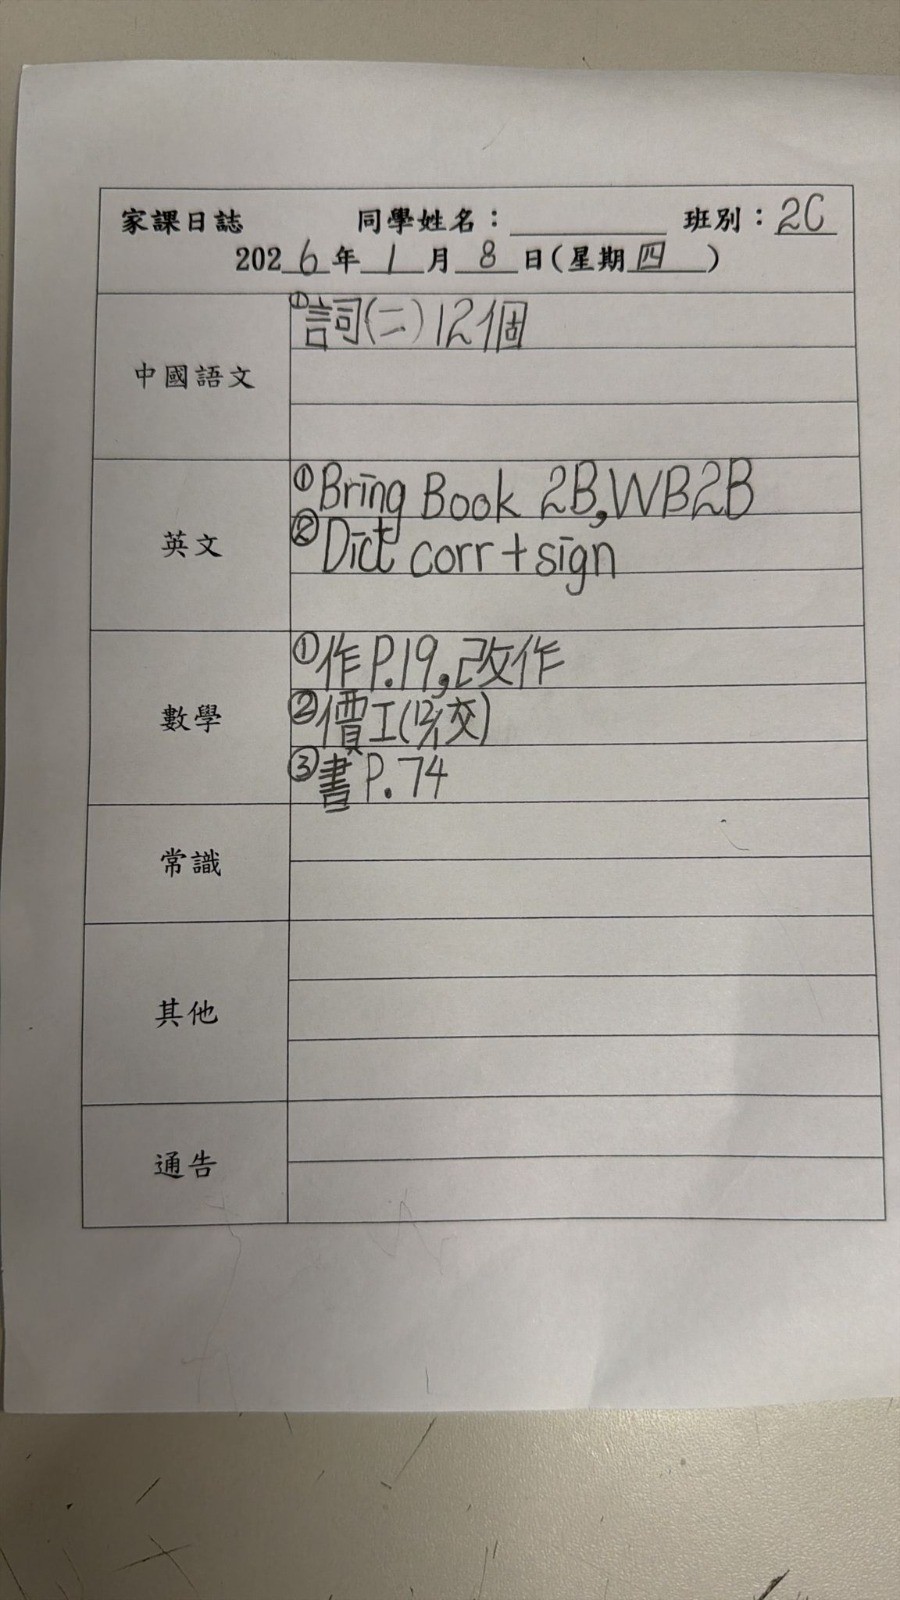 家課日誌 同學姓名：________ 班別：2C
2026年1月8日(星期四)
中國語文
①詞(二)12個
英文
①Bring Book 2B,WB2B
②Dict corr+sign
數學
①作P.19,改作
②價工(12/1交)
③書P.74
常識
其他
通告